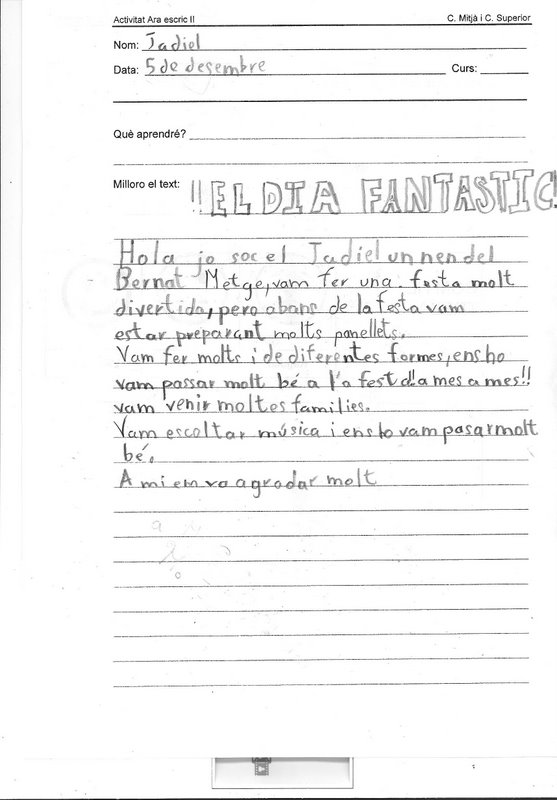 Activitat Ara escric II C. Mitjà i C. Superior
Nom: Jadiel
Data: 5 de desembre Curs:
Què aprendré?
Milloro el text: !!EL DIA FANTASTIC!
Hola jo soc el Jadiel un nen del
Bernat Metge, vam fer una festa molt
divertida, pero abans de la festa vam
estar preparant molts panellets.
Vam fer molts i de diferentes formes, ens ho
vam passar molt bé a l'a fest d!a mes a mes!!
vam venir moltes families.
Vam escoltar música i ens ho vam pasar molt
bé.
A mi em va agradar molt